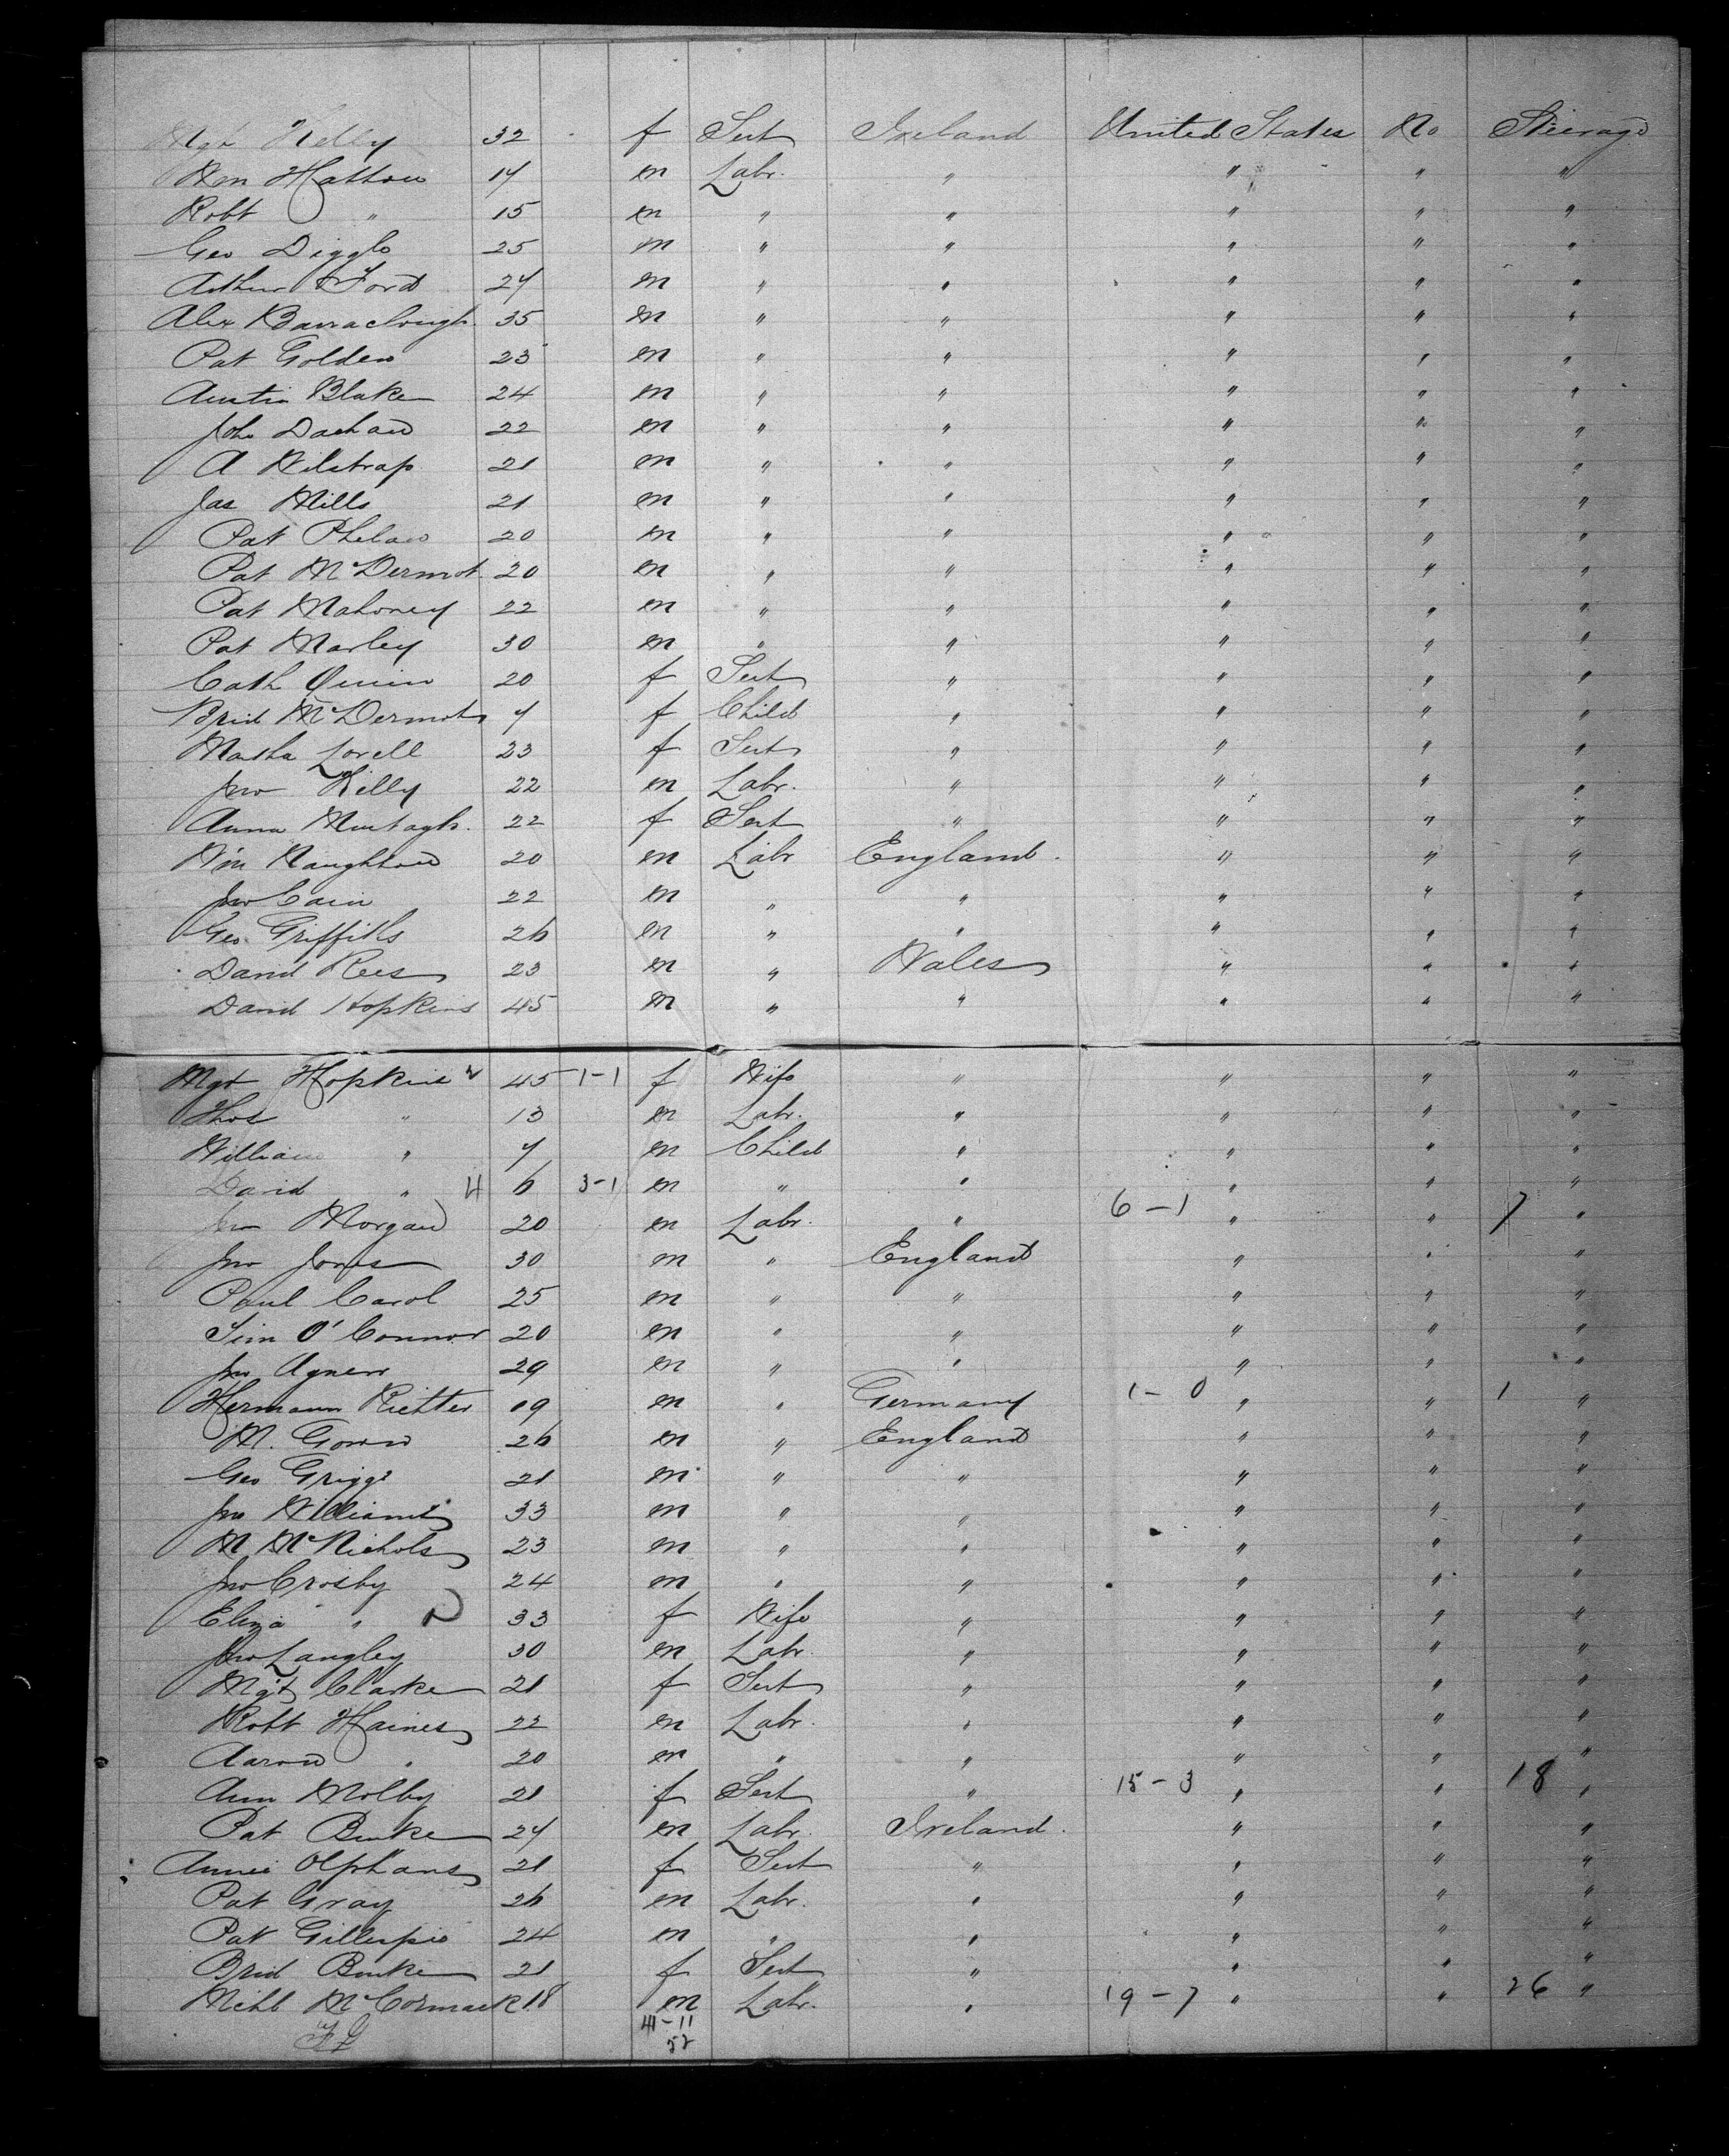 Mgt Kelly 32 f Sert Ireland United States No Steerage
Wm Hatton 17 m Labr. " " " "
Robt " 15 m " " " " "
Geo Diggle 25 m " " " " "
Arthur Ford 27 m " " " " "
Alex Barraclough 35 m " " " " "
Pat Golden 23 m " " " " "
Austin Blake 24 m " " " " "
John 22 m " " " " "
A Wilstrap 21 m " " " " "
Jas Mills 21 m " " " " "
Pat Phelan 20 m " " " " "
Pat McDermot 20 m " " " " "
Pat Mahoney 22 m " " " " "
Pat Marley 30 m " " " " "
Cath Quinn 20 f Sert " " " "
Brid McDermot 7 f Child " " " "
Martha Lovell 23 f Sert " " " "
Jno Kelly 22 m Labr. " " " "
Anna Murtagh. 22 f Sert " " " "
Wm Naughton 20 m Labr England. " " "
Jno Cain 22 m " " " " "
Geo. Griffiths 26 m " " " " "
David Rees 23 m " Wales " " "
David Hopkins 45 m " " " " "
Mgt Hopkins 45 1-1 f Wife " " " "
Thos " 13 m Labr. " " " "
William " 7 m Child " " " "
David " 4 6 3-1 m " " " " "
Jno Morgan 20 m Labr. " 6-1 " " 7 "
Jno Jones 30 m " England " " "
Paul Carol 25 m " " " " "
Tim O'Connor 20 m " " " " "
Jno Agnew 29 m " " " " "
Hermann Richter 19 m " Germany 1-0 " " 1 "
M. Gowan 26 m " England " " "
Geo Griggs 21 m " " " " "
Jno Williams 33 m " " " " "
M McNichols 23 m " " " " "
Jno Crosby 24 m " " " " "
Eliza " 2 33 f Wife " " " "
Jno Langley 30 m Labr. " " " "
Mgt Clarke 21 f Sert " " " "
Robt Haines 22 m Labr. " " " "
Aaron " 20 m " " " " "
Ann Molby 21 f Sert " 15-3 " " 18 "
Pat Burke 27 m Labr. Ireland. " " "
Annie Olphans 21 f Sert " " " "
Pat Gray 26 m Labr. " " " "
Pat Gillespie 24 m " " " " "
Brid Burke 21 f Sert " " " "
Michl McCormack 18 m Labr. " 19-7 " " 26 "
41-11
52